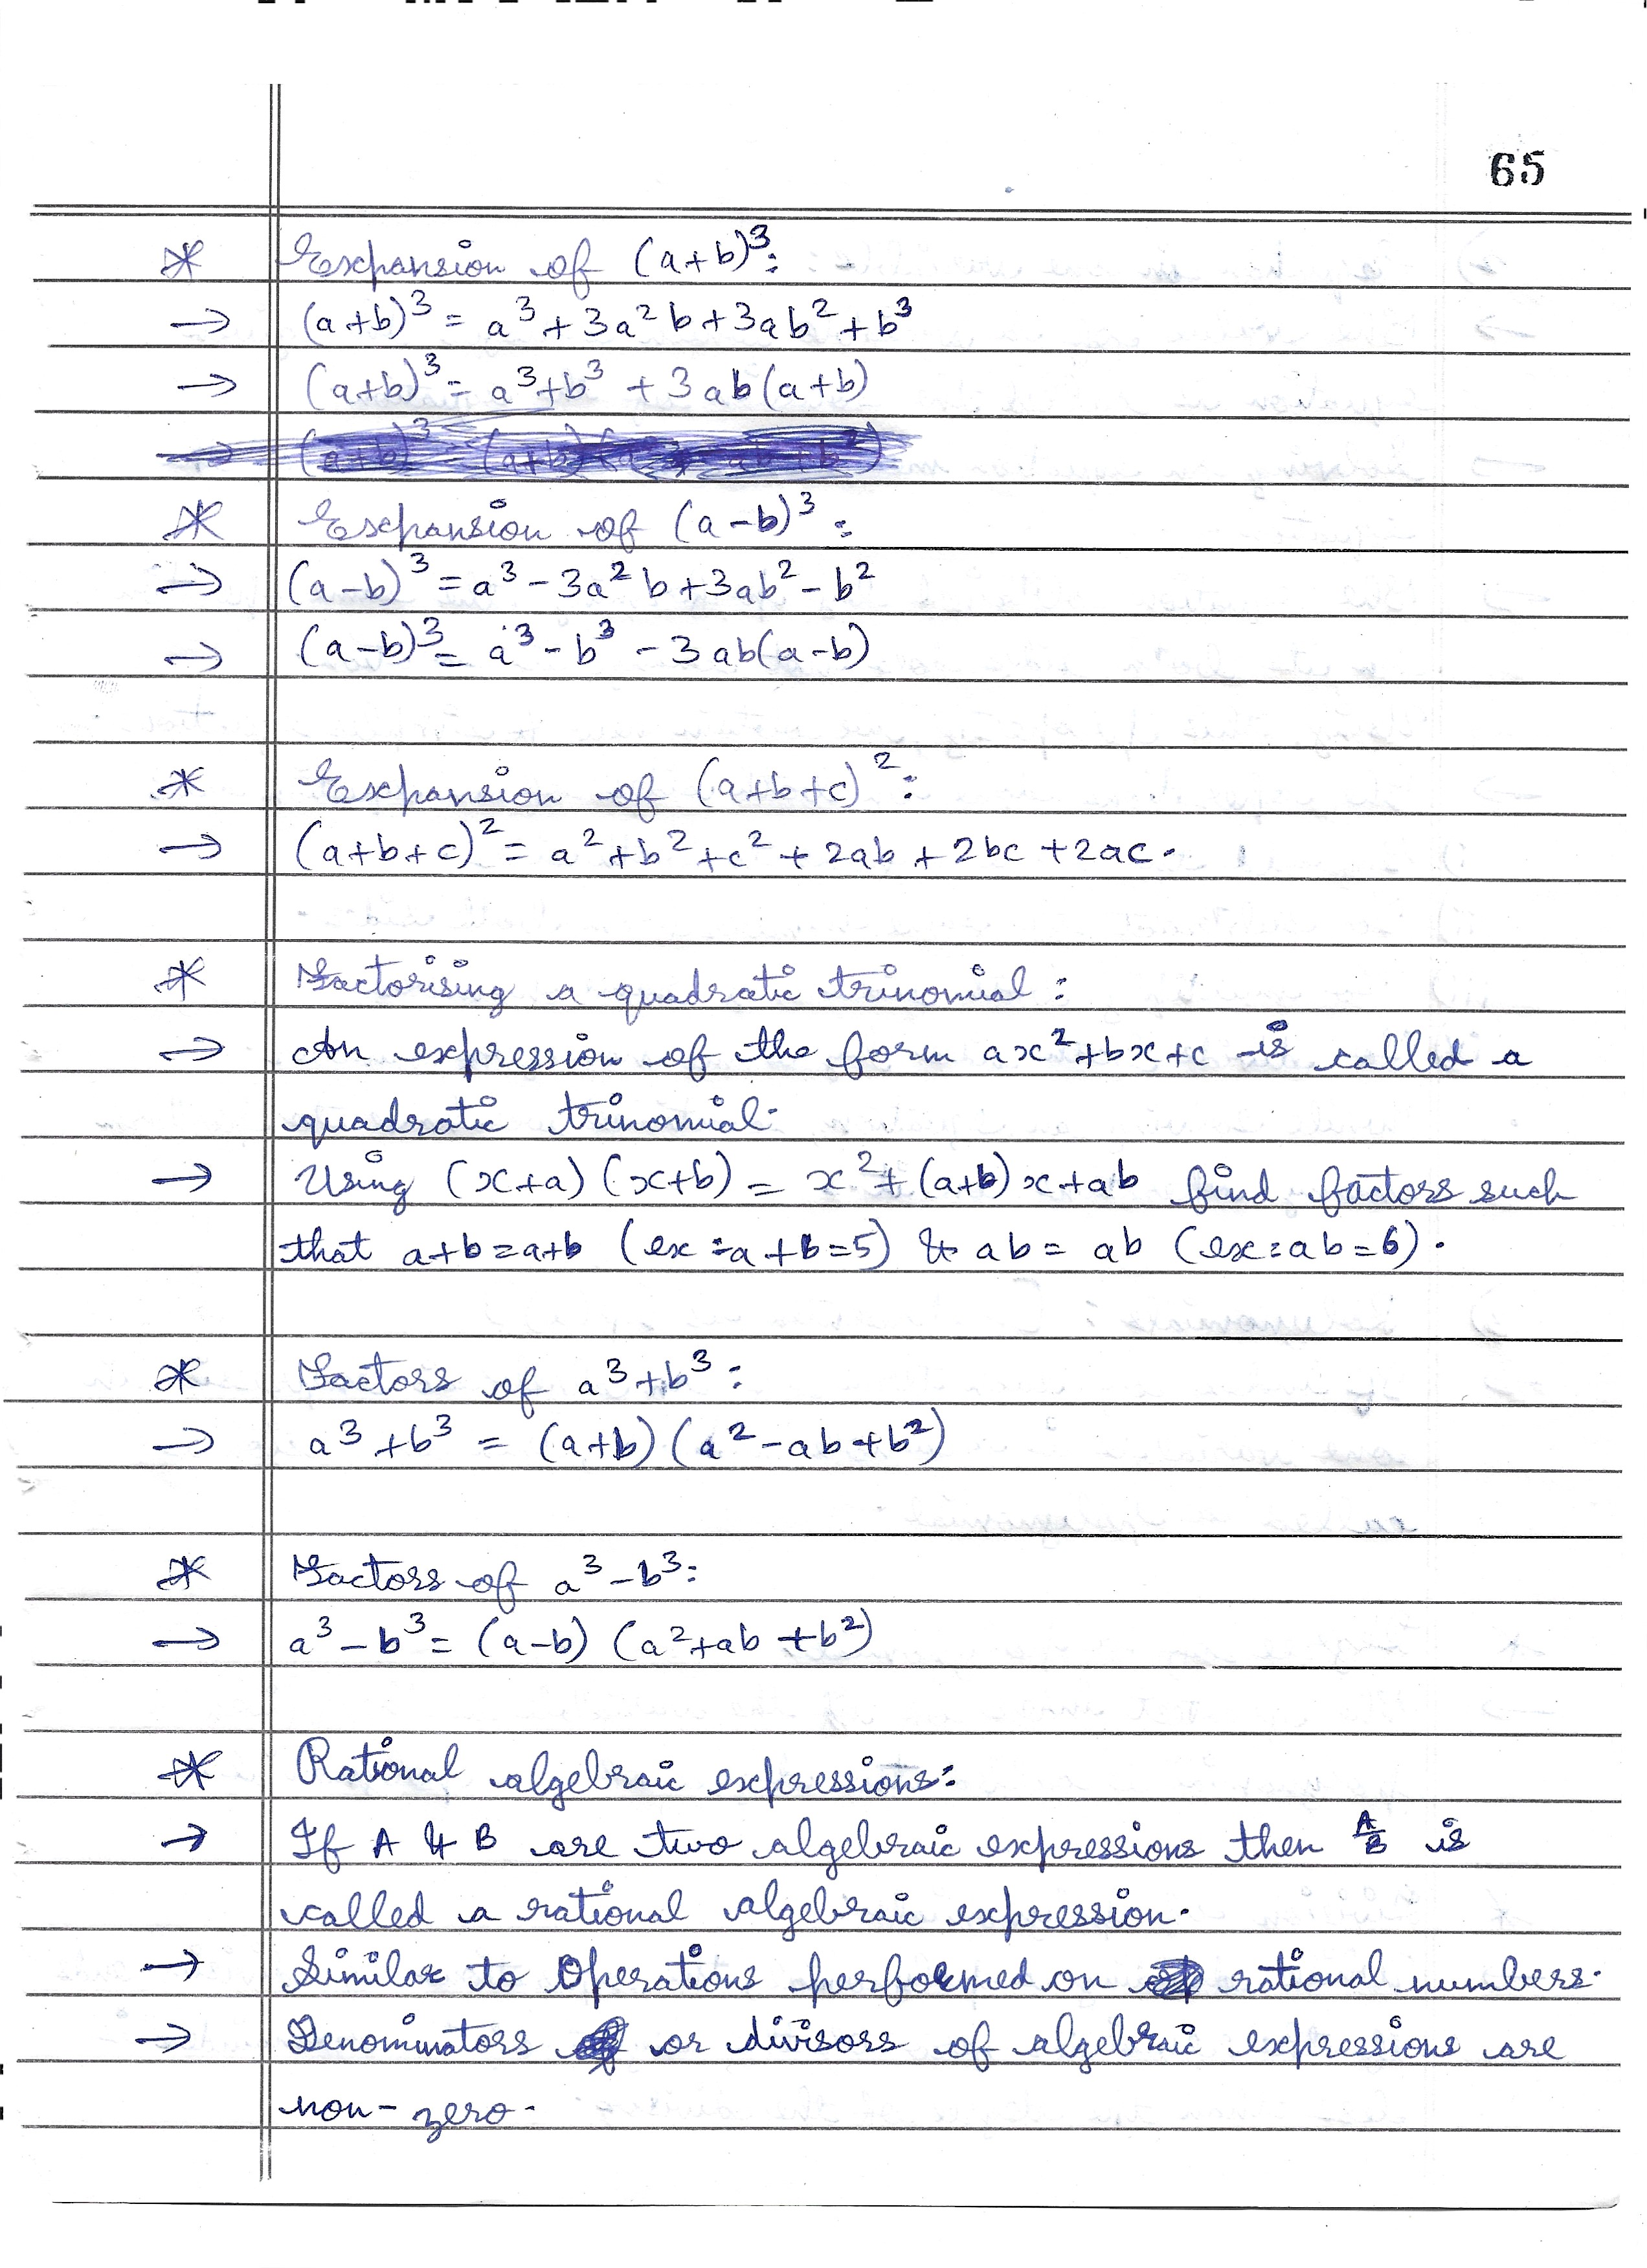 65
* Expansion of (a+b)³:
→ (a+b)³ = a³ + 3a²b + 3ab² + b³
→ (a+b)³ = a³+b³ + 3ab(a+b)
* Expansion of (a-b)³:
→ (a-b)³ = a³ - 3a²b + 3ab² - b²
→ (a-b)³ = a³ - b³ - 3ab(a-b)
* Expansion of (a+b+c)²:
→ (a+b+c)² = a² + b² + c² + 2ab + 2bc + 2ac.
* Factorising a quadratic trinomial:
→ An expression of the form ax²+bx+c is called a
quadratic trinomial.
→ Using (x+a)(x+b) = x² + (a+b)x+ab find factors such
that a+b=a+b (ex:a+b=5) & ab= ab (ex:ab=6).
* Factors of a³+b³:
→ a³+b³ = (a+b)(a²-ab+b²)
* Factors of a³-b³:
→ a³-b³ = (a-b) (a²+ab+b²)
* Rational algebraic expressions:
→ If A & B are two algebraic expressions then A/B is
called a rational algebraic expression.
→ Similar to Operations performed on rational numbers.
→ Denominators or divisors of algebraic expressions are
non-zero.